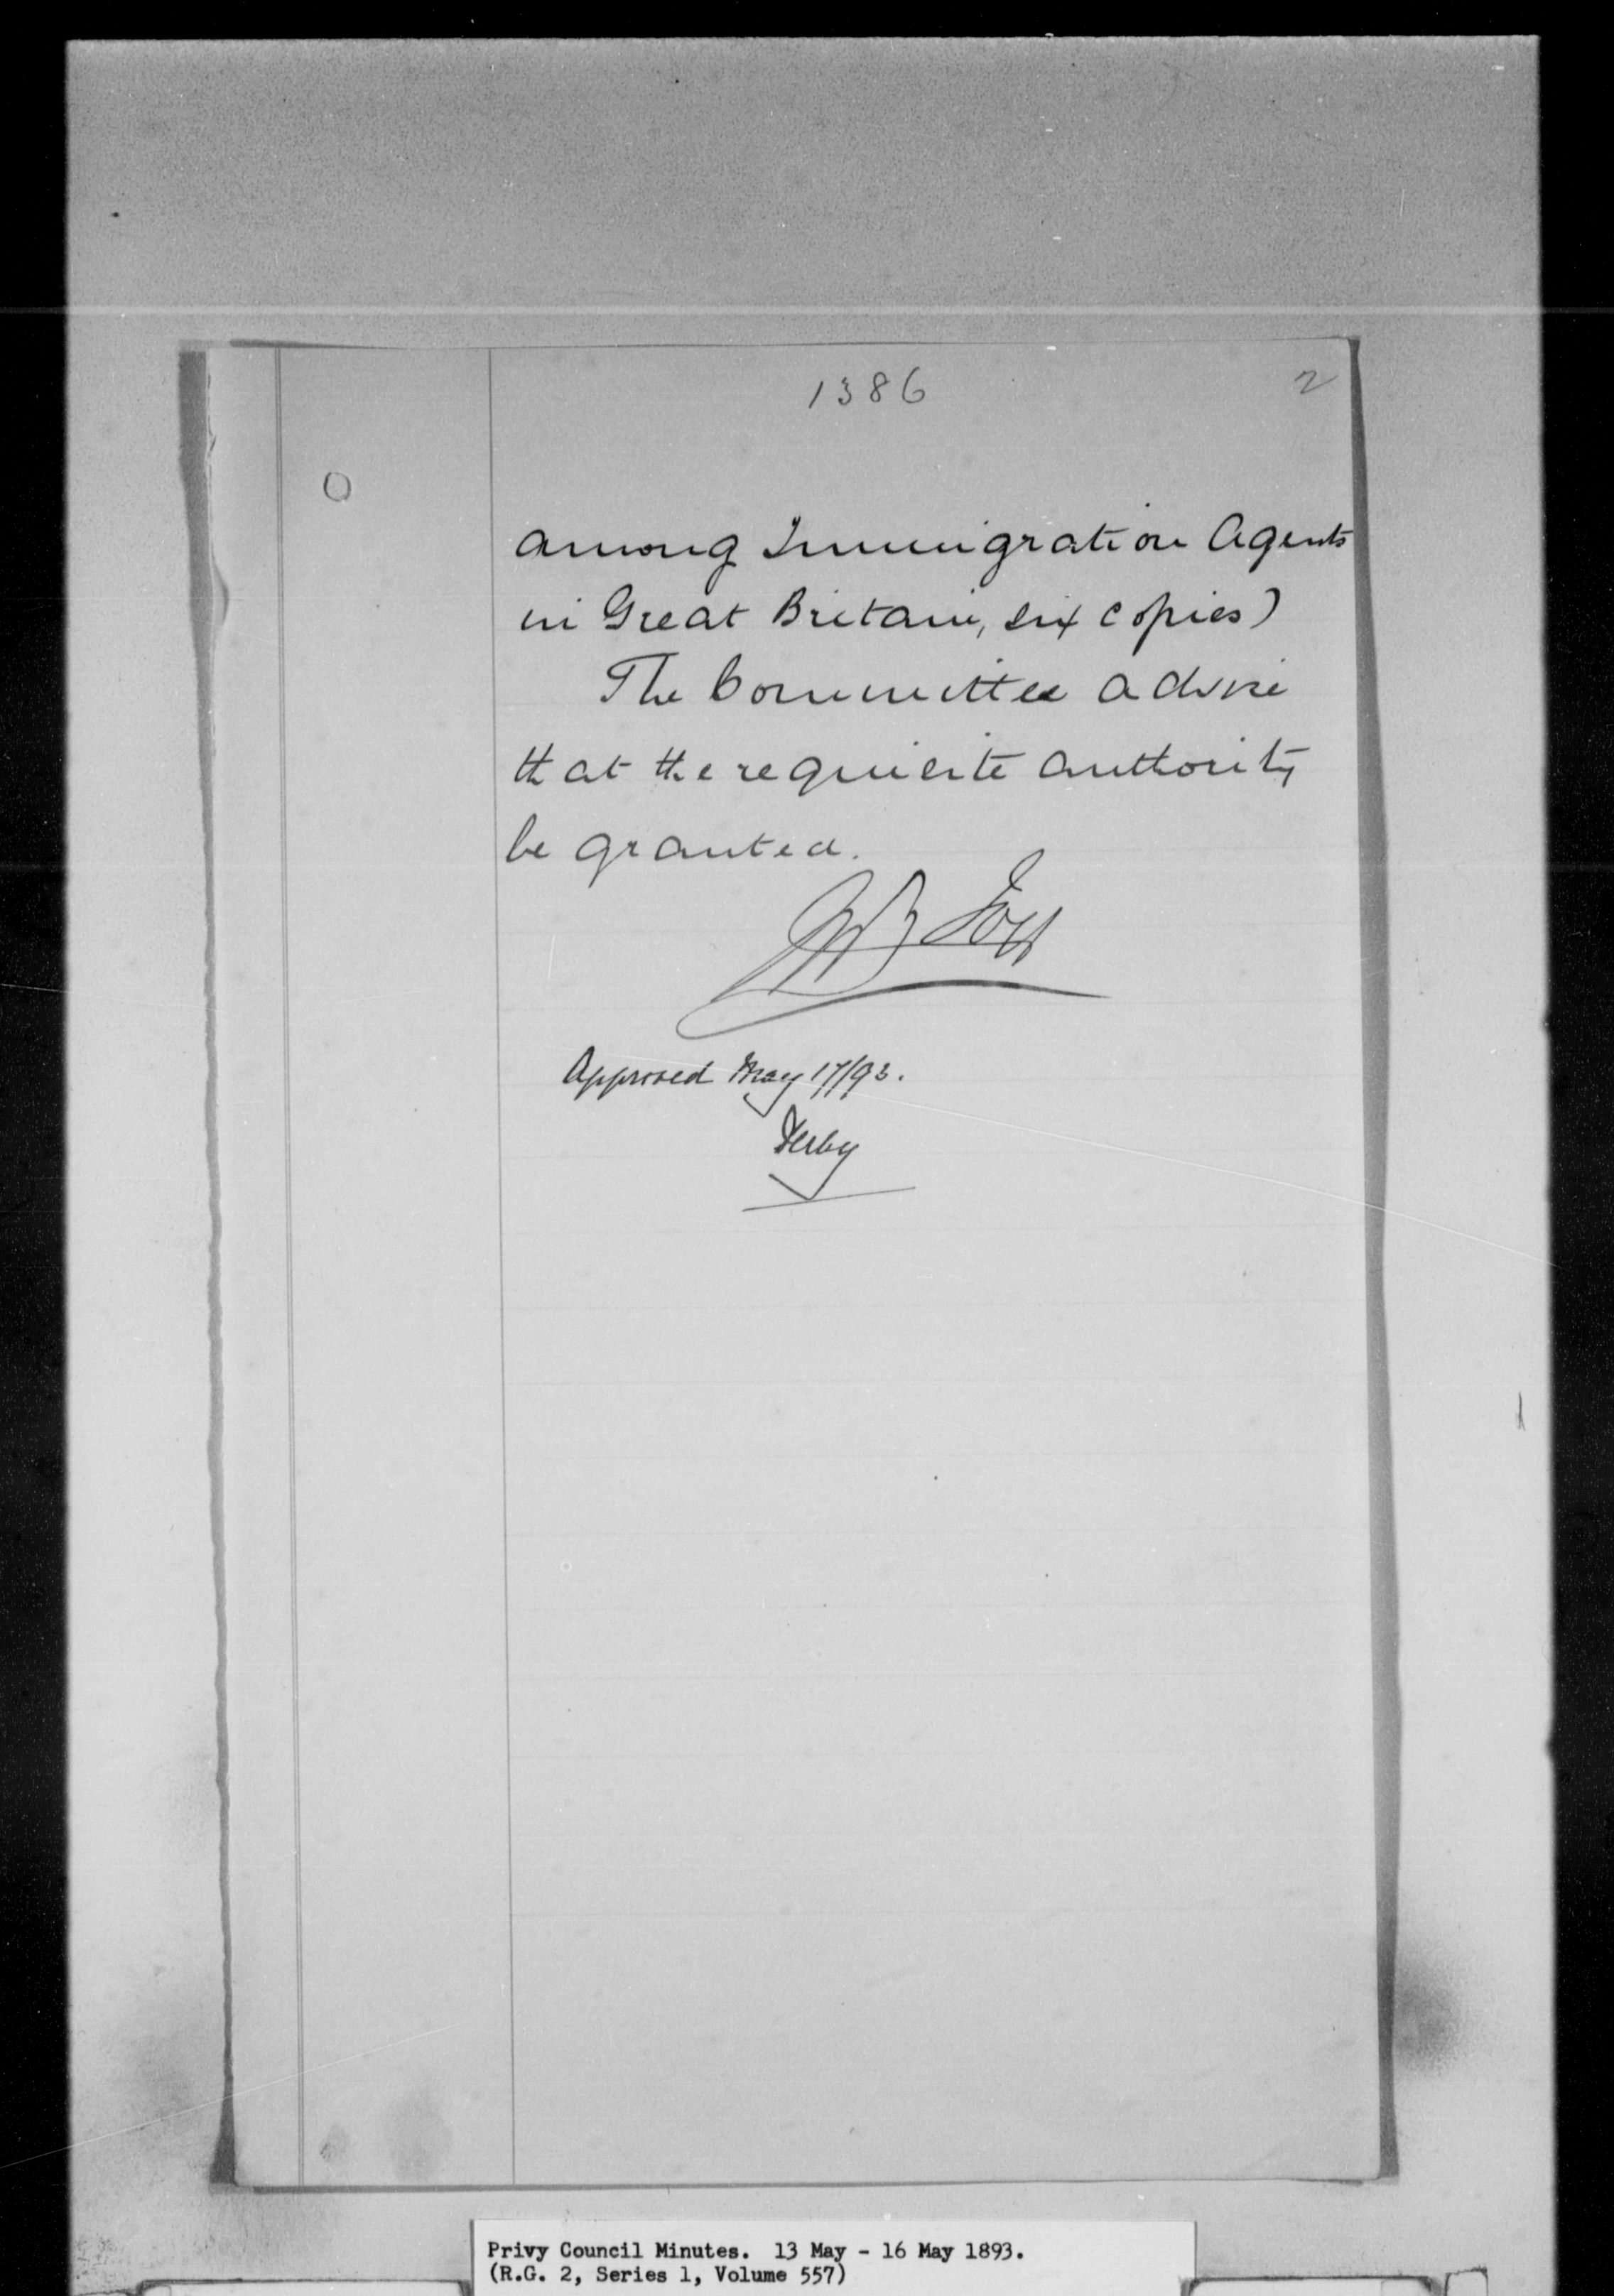 1386
2
among Immigration Agents
in Great Britain, six copies)
The Committee advise
that the requisite authority
be granted.
Approved May 17/93.
Derby
Privy Council Minutes. 13 May - 16 May 1893.
(R.G. 2, Series 1, Volume 557)